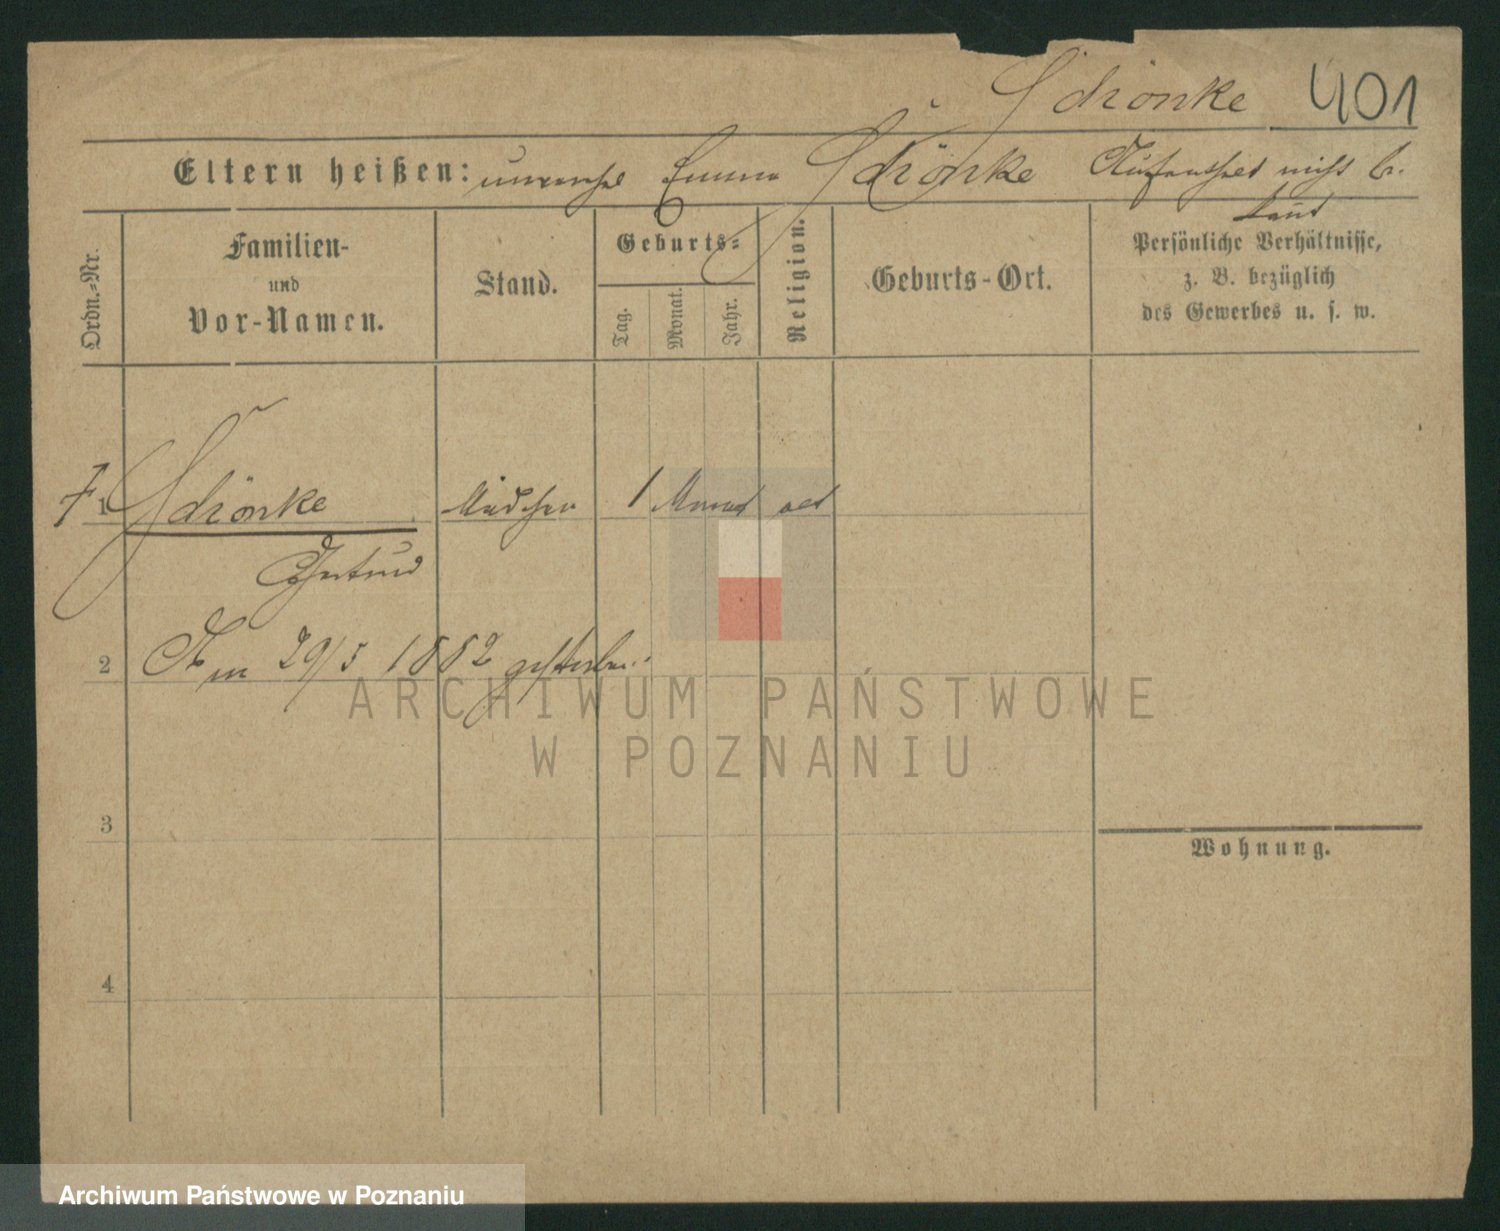 Schönke 401
Eltern heißen: unverehel Emma Schönke Aufenthalt nicht be-
kannt
Ordn.=Nr.
Familien-
und
Vor-Namen.
Stand.
Geburts=
Tag.
Monat.
Jahr.
Religion.
Geburts-Ort.
Persönliche Verhältnisse,
z. B. bezüglich
des Gewerbes u. s. w.
1 Schönke Mädchen 1 Monat alt
Gertrud
2 Am 29/5 1882 gestorben.
3
4
Wohnung.
ARCHIWUM PAŃSTWOWE
W POZNANIU
Archiwum Państwowe w Poznaniu